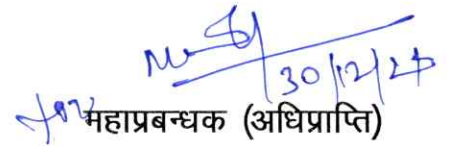 30/12/24
for महाप्रबन्धक (अधिप्राप्ति)